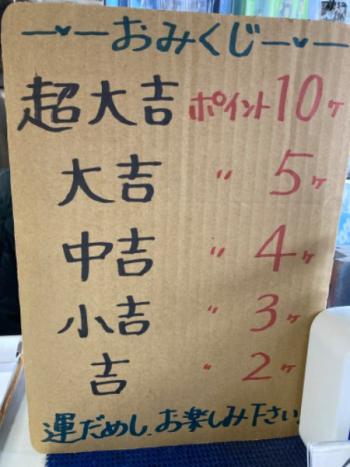 おみくじ
超大吉 ポイント10ヶ
大吉 〃 5ヶ
中吉 〃 4ヶ
小吉 〃 3ヶ
吉 〃 2ヶ
運だめし、お楽しみ下さい